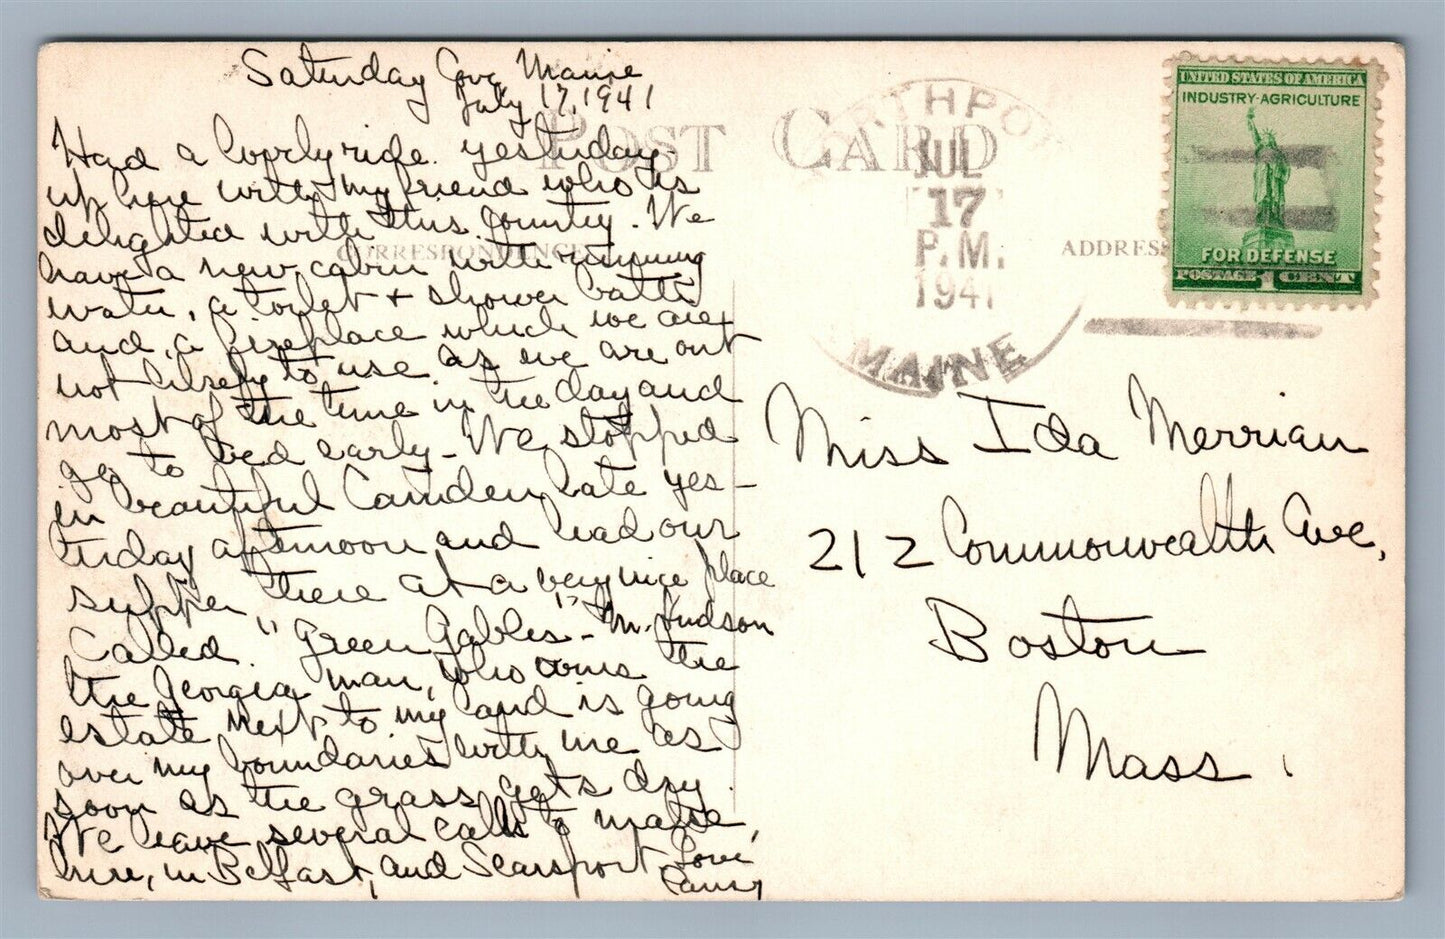 Saturday Cove Maine
July 17, 1941
Had a lovely ride yesterday
up here with my friend who is
delighted with this country. We
have a new cabin with running
water, a toilet + shower bath
and a fireplace which we are
not likely to use as we are out
most of the time in the day and
go to bed early - We stopped
in beautiful Camden late yes-
terday afternoon and had our
supper there at a very nice place
called "Green Gables" - Mr. Judson
the Georgia man, who owns the
estate next to my land is going
over my boundaries with me as
soon as the grass gets dry.
We have several calls to make,
here, in Belfast, and Searsport
Love
POST CARD
CORRESPONDENCE
ADDRESS
NORTHPORT
JUL
17
P.M.
1941
MAINE
UNITED STATES OF AMERICA
INDUSTRY-AGRICULTURE
FOR DEFENSE
POSTAGE 1 CENT
Miss Ida Merriam
212 Commonwealth Ave,
Boston
Mass.